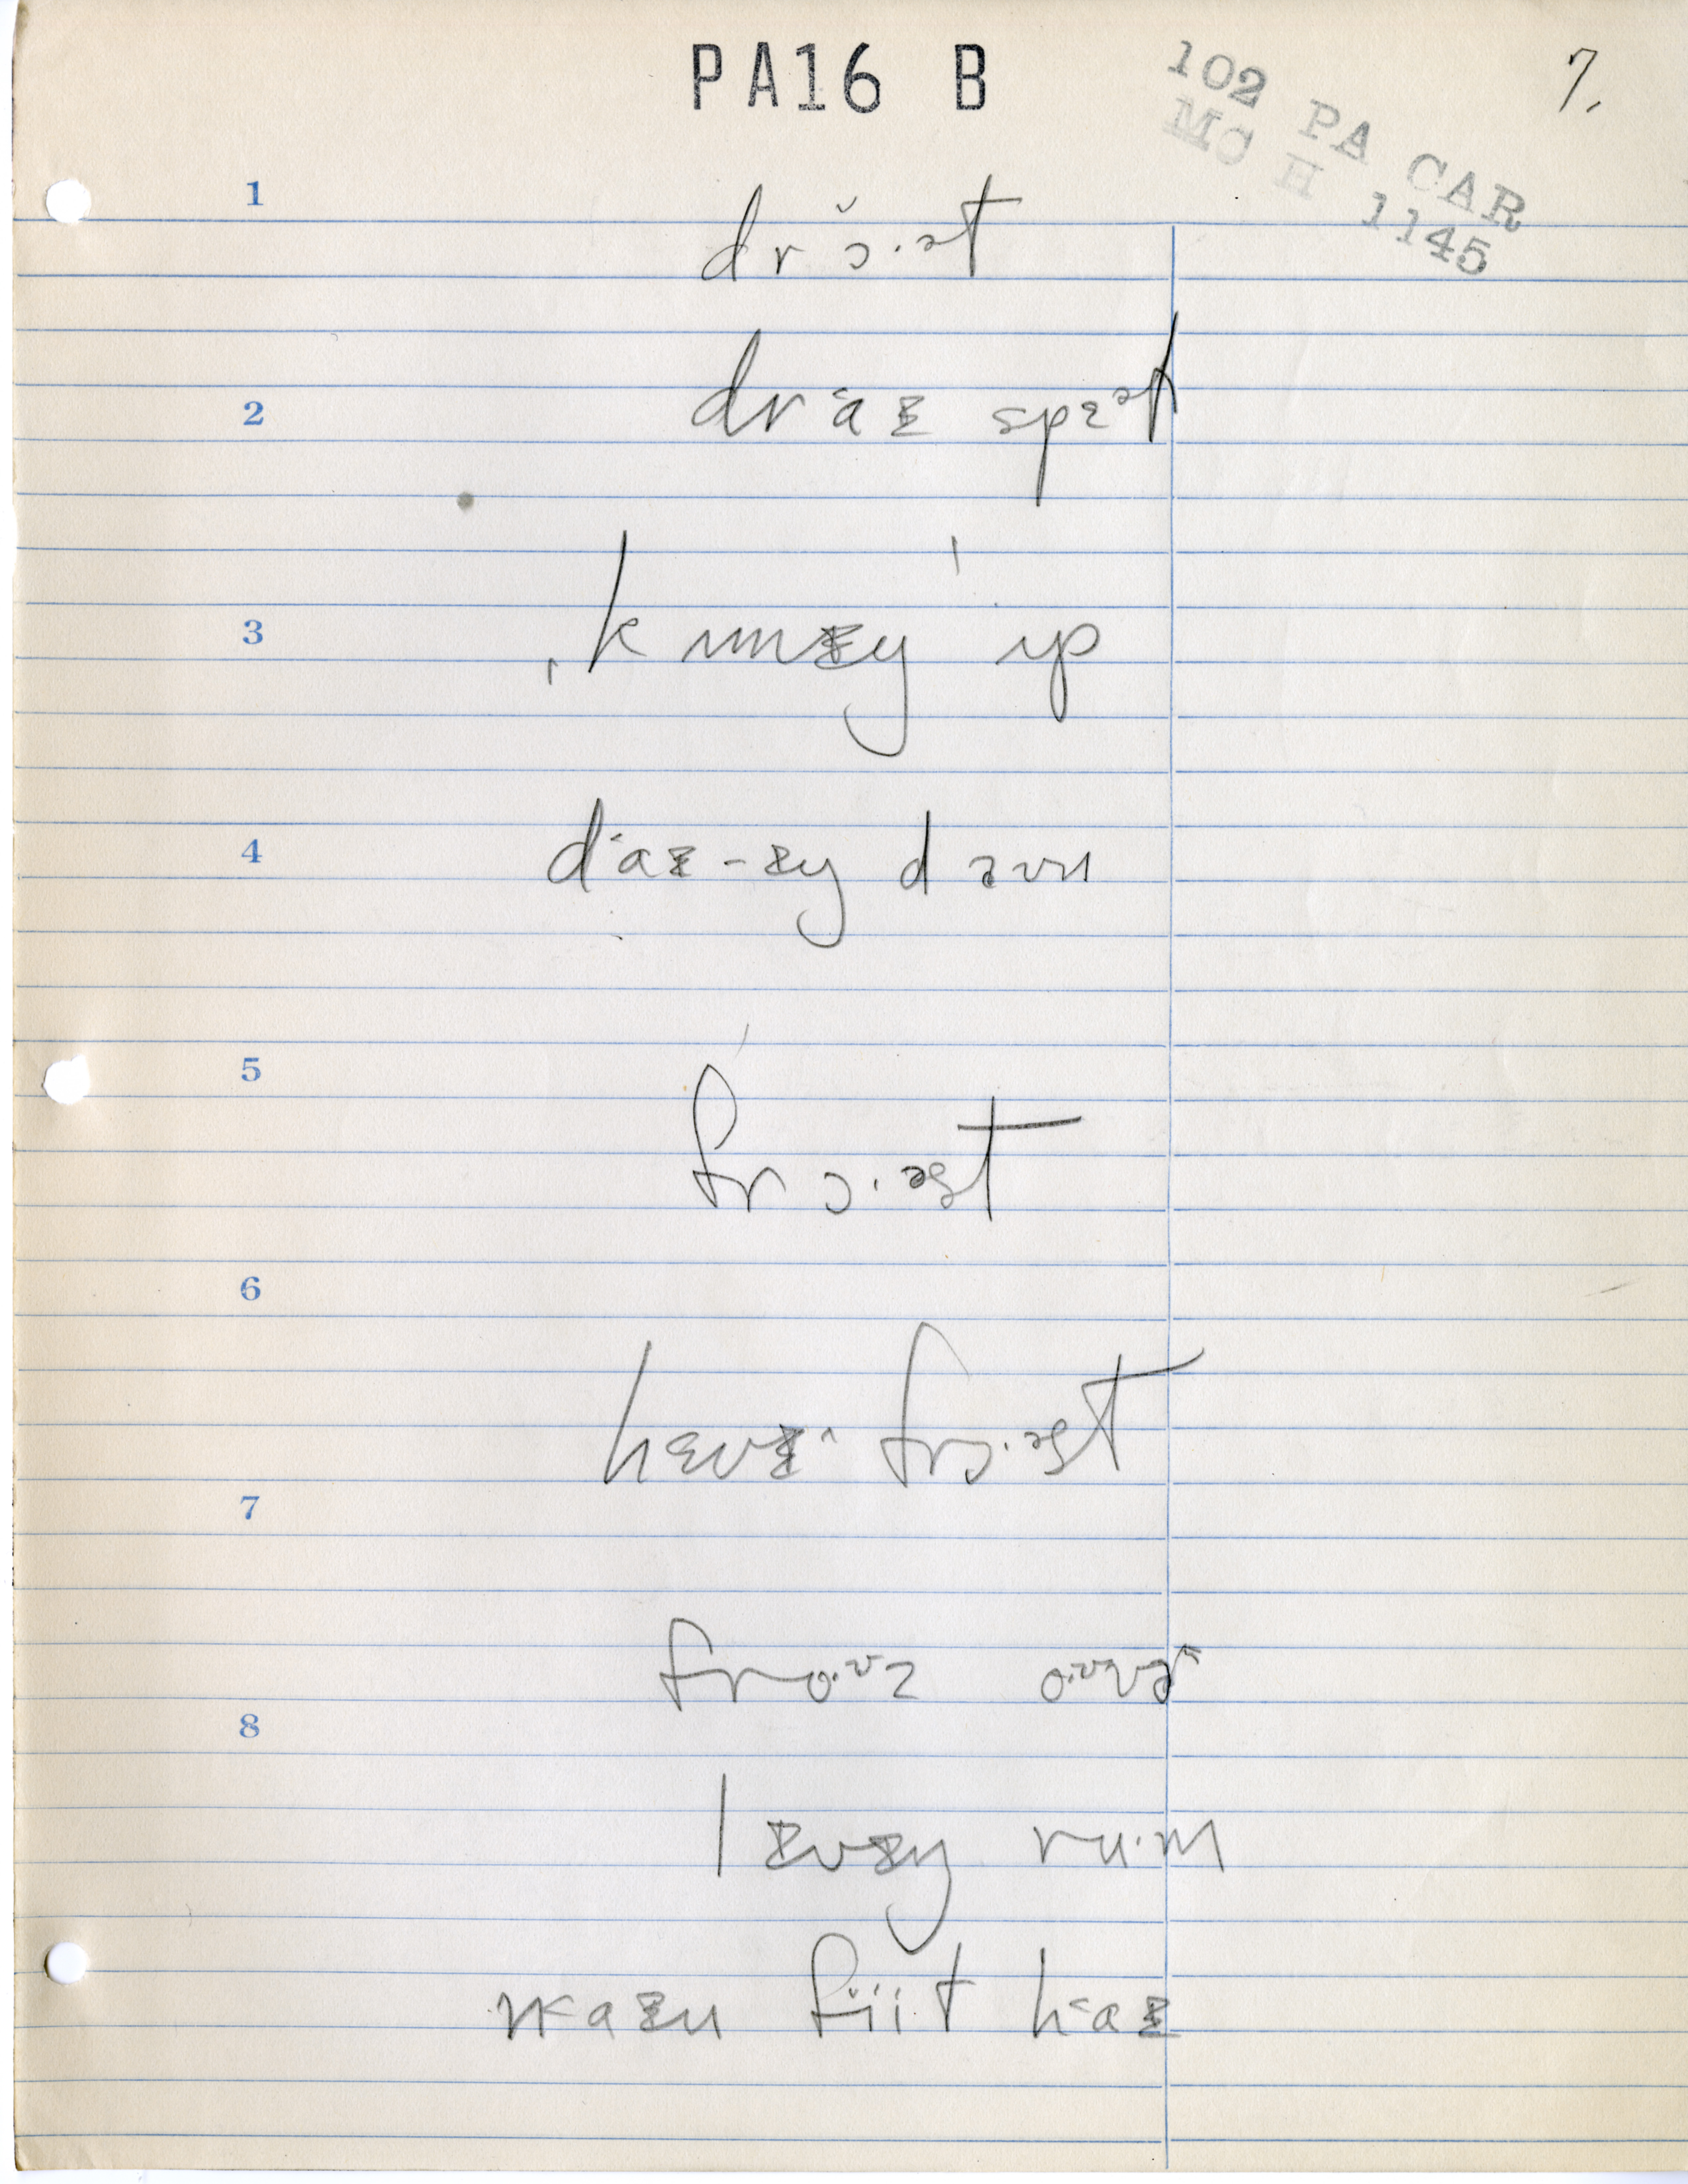 PA16 B
102 PA CAR
MC H 1145
7.
1
drɔ̆·ət
2
draᵻ spɛᵊt
3
ˌkʌmᵻŋ ˈʌp
4
daᵻ-ᵻŋ daʊn
5
frɔ·əst
6
hɛvᵻ frɔ·əst
7
fro·ᶷz o·ᶷvɚ
8
lᵻvᵻŋ ru·m
naᵻn fiit haᵻ